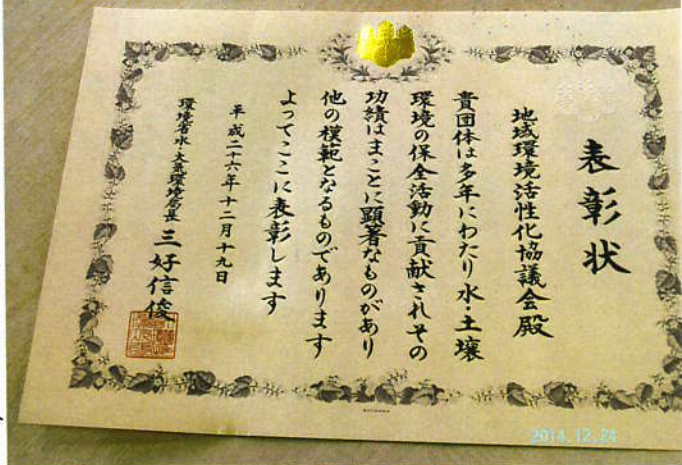 表彰状
地域環境活性化協議会殿
貴団体は多年にわたり水・土壌
環境の保全活動に貢献されその
功績はまことに顕著なものがあり
他の模範となるものであります
よってここに表彰します
平成二十六年十二月十九日
環境省水・大気環境局長 三好信俊
2014.12.24